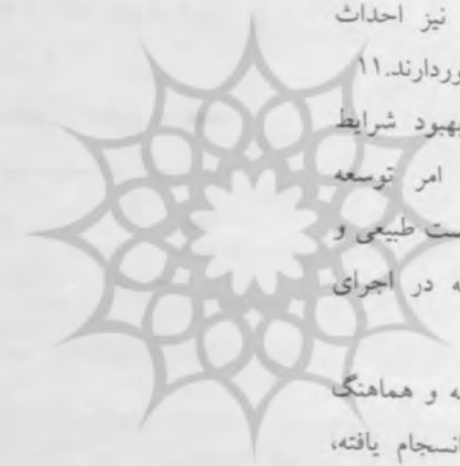 نیز احداث
وردارند.۱۱
بهبود شرایط
امر توسعه
ست طبیعی و
ه در اجرای
ه و هماهنگ
انسجام یافته،